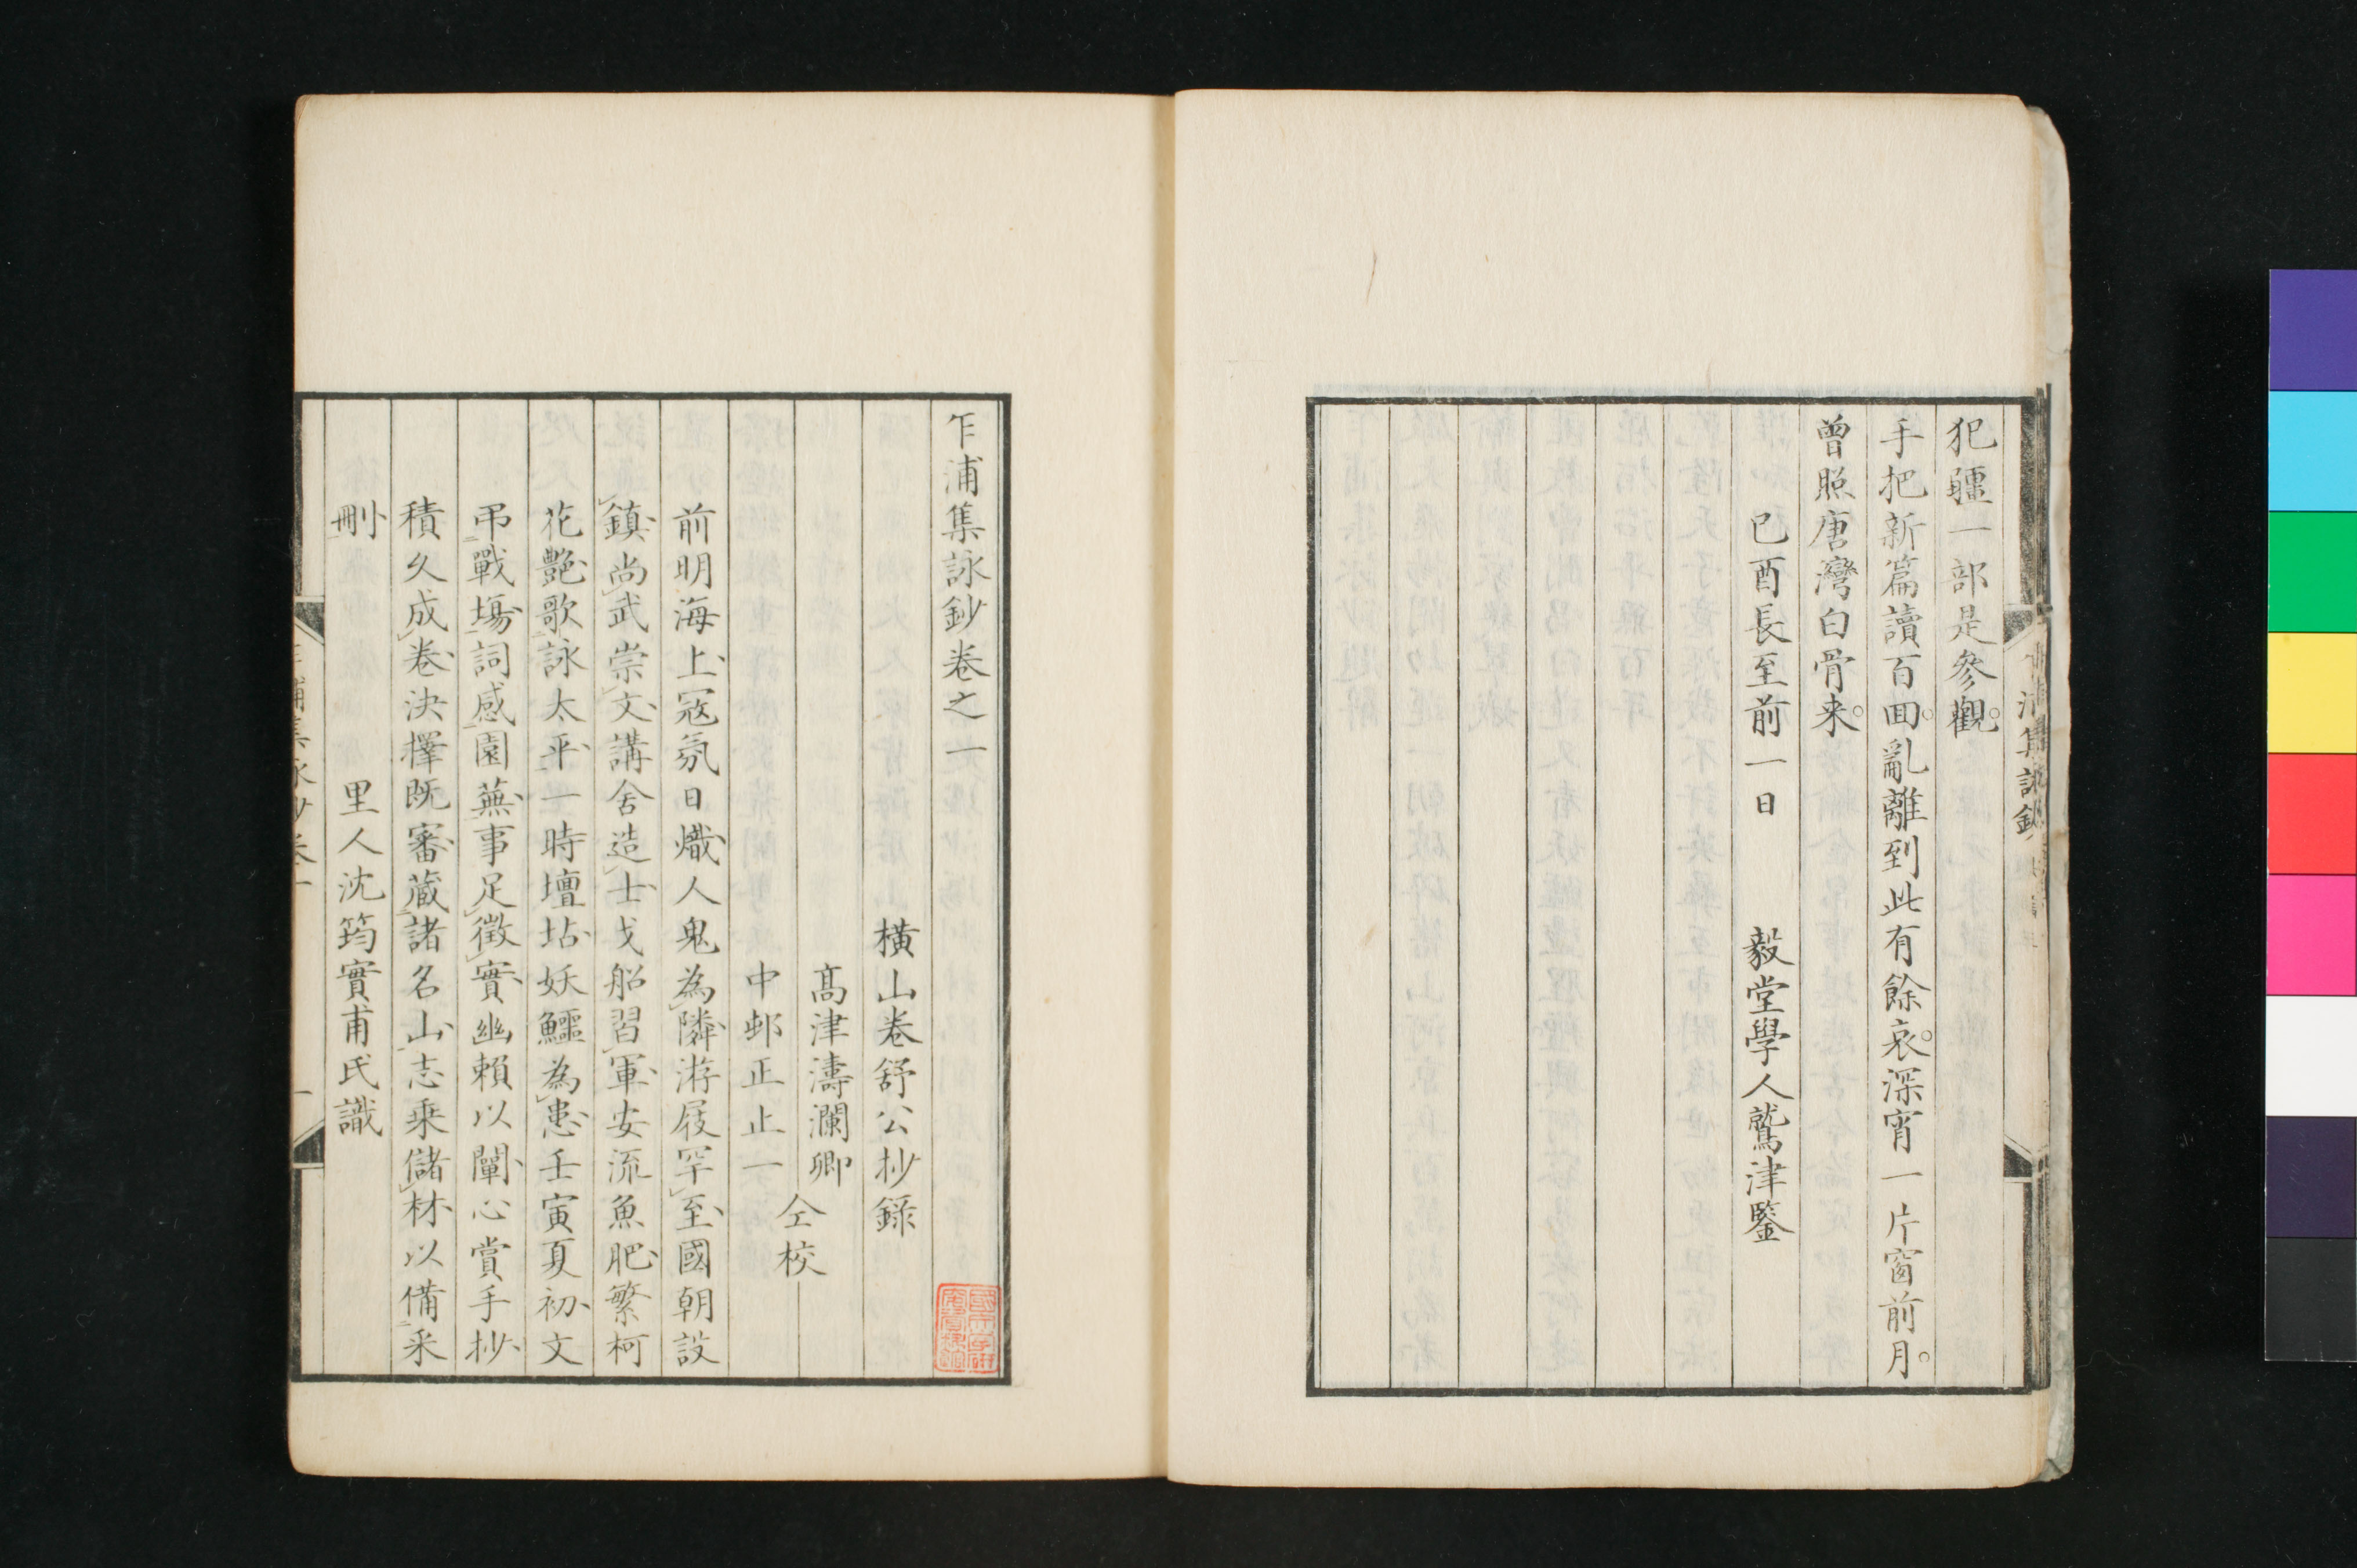 犯疆一部是參觀。
手把新篇讀百回。亂離到此有餘哀。深宵一片窗前月。
曾照唐灣白骨来。
已酉長至前一日　毅堂學人鷲津鑒
乍浦集詠鈔卷之一
橫山卷舒公抄錄
高津濤瀾卿
中邨正止一
仝校
前明海上寇氛日熾人鬼為隣游屐罕至國朝設
鎮尚武崇文講舍造士戈船習軍安流魚肥繁柯
花艶歌詠太平一時壇坫妖鱷為患壬寅夏初文
弔戰場詞感園蕪事足徵實幽賴以闡心賞手抄
積久成卷決擇既審藏諸名山志乘儲材以備采
刪
里人沈筠實甫氏識